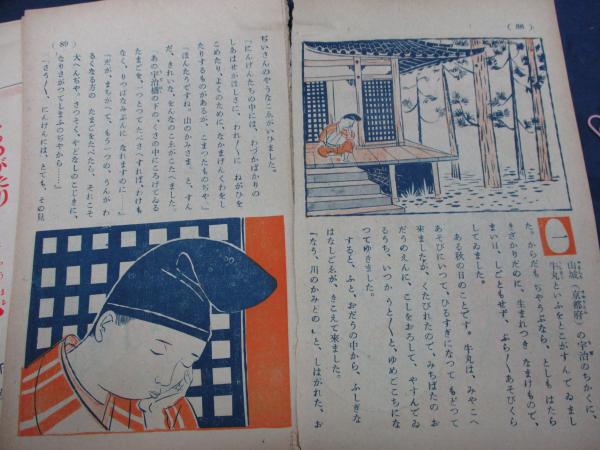 (88)
山城(京都府)の宇治のちかくに、
牛丸といふをとこがすんでゐまし
た。からだもぢやうぶなら、としもはたら
きざかりだのに、生まれつきなまけもので、
まい日、しごともせず、ぶら〳〵あそびくら
してゐました。
ある秋の日のことです。牛丸は、みやこへ
あそびにいつて、ひるすぎになつてもどつて
來ましたが、くたびれたので、みちばたのお
だうのえんに、こしをおろして、やすんでゐ
るうち、いつかうと〳〵と、ゆめごこちにな
つてゆきました。
すると、ふと、おだうの中から、ふしぎな
はなしごゑが、きこえて來ました。
「なう、川のかみどの」と、しはがれた、お
ぢいさんのやうなこゑがいひました。
「にんげんたちの中には、わづかばかりの
しあはせほしさに、われ〳〵にねがひを
こめたり、よくのために、なかまげんくわをし
たりするものがあるが、こまつたものぢや。」
「ほんたうですね。山のかみさま。」と、すん
だ、きれいな、をんなのこゑがこたへました。
あの宇治橋の下の、くさの中にころげてゐる
たまごを、一つとつてたべさへすれば、わけも
なく、りつぱなみぶんになれますのに……」
「だが、まちがへて、もう一つの、うんがわ
るくなる方のたまごをたべたら、それこそ
大へんぢや。さつそく、やどなしのこじきに、
なりさがつてしまふのぢやから……」
「さう〳〵、にんげんには、とても、その見
(89)